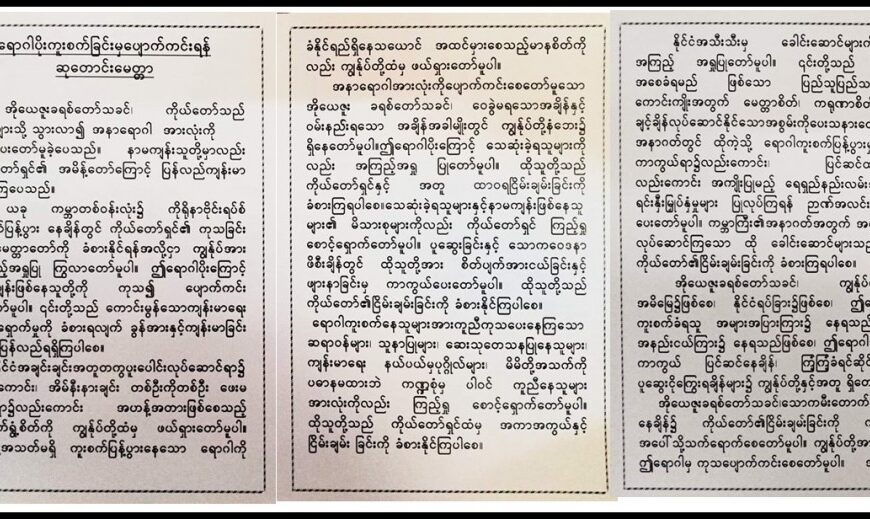 ရောဂါပိုးကူးစက်ခြင်းမှပျောက်ကင်းရန်
ဆုတောင်းမေတ္တာ
အိုယေဇူးခရစ်တော်သခင်၊ ကိုယ်တော်သည်
များသို့ သွားလာ၍ အနာရောဂါ အားလုံးကို
ပေးတော်မူခဲ့ပေသည်။ နာမကျန်းသူတို့မှာလည်း
တော်ရှင်၏ အမိန့်တော်ကြောင့် ပြန်လည်ကျန်းမာ
ကြပေသည်။
ယခု ကမ္ဘာတစ်ဝန်းလုံး၌ ကိုရိုနာဗိုင်းရပ်စ်
ပြန့်ပွား နေချိန်တွင် ကိုယ်တော်ရှင်၏ ကုသခြင်း
မေတ္တာတော်ကို ခံစားနိုင်ရန်အလို့ငှာ ကျွန်ုပ်အား
အရှုပြု ကြွလာတော်မူပါ။ ဤရောဂါပိုးကြောင့်
ကျန်းဖြစ်နေသူတို့ကို ကုသ၍ ပျောက်ကင်း
တော်မူပါ။ ၎င်းတို့သည် ကောင်းမွန်သောကျန်းမာရေး
ရှောက်မှုကို ခံစားရလျက် ခွန်အားနှင့်ကျန်းမာခြင်း
ပြန်လည်ရရှိကြပါစေ။
နိုင်ငံအချင်းချင်းအတူတကွပူးပေါင်းလုပ်ဆောင်ရာ၌
ကောင်း၊ အိမ်နီးနားချင်း တစ်ဦးကိုတစ်ဦး ဖေးမ
ရာ၌လည်းကောင်း အဟန့်အတားဖြစ်စေသည့်
ရွံ့စိတ်ကို ကျွန်ုပ်တို့ထံမှ ဖယ်ရှားတော်မူပါ။
အသတ်မရှိ ကူးစက်ပြန့်ပွားနေသော ရောဂါကို
ခံနိုင်ရည်ရှိနေသယောင် အထင်မှားစေသည့်မာနစိတ်ကို
လည်း ကျွန်ုပ်တို့ထံမှ ဖယ်ရှားတော်မူပါ။
အနာရောဂါအားလုံးကိုပျောက်ကင်းစေတော်မူသော
အိုယေဇူး ခရစ်တော်သခင်၊ ဝေခွဲမရသောအချိန်နှင့်
ဝမ်းနည်းရသော အချိန်အခါမျိုးတွင် ကျွန်ုပ်တို့နံဘေး၌
ရှိနေတော်မူပါ။ဤရောဂါပိုးကြောင့် သေဆုံးခဲ့ရသူများကို
လည်း အကြည့်အရှု ပြုတော်မူပါ။ ထိုသူတို့သည်
ကိုယ်တော်ရှင်နှင့် အတူ ထာဝရငြိမ်းချမ်းခြင်းကို
ခံစားကြရပါစေ။သေဆုံးခဲ့ရသူများနှင့်နာမကျန်းဖြစ်နေသူ
များ၏ မိသားစုများကိုလည်း ကိုယ်တော်ရှင် ကြည့်ရှု
စောင့်ရှောက်တော်မူပါ။ ပူဆွေးခြင်းနှင့် သောကဝေဒနာ
ဖိစီးချိန်တွင် ထိုသူတို့အား စိတ်ပျက်အားငယ်ခြင်းနှင့်
ဖျားနာခြင်းမှ ကာကွယ်ပေးတော်မူပါ။ ထိုသူတို့သည်
ကိုယ်တော်၏ငြိမ်းချမ်းခြင်းကို ခံစားနိုင်ကြပါစေ။
ရောဂါကူးစက်နေသူများအားကူညီကုသပေးနေကြသော
ဆရာဝန်များ၊ သူနာပြုများ၊ ဆေးသုတေသနပြုနေသူများ၊
ကျန်းမာရေး နယ်ပယ်မှပုဂ္ဂိုလ်များ၊ မိမိတို့အသက်ကို
ပဓာနမထားဘဲ ကဏ္ဍစုံမှ ပါဝင် ကူညီနေသူများ
အားလုံးကိုလည်း ကြည့်ရှု စောင့်ရှောက်တော်မူပါ။
ထိုသူတို့သည် ကိုယ်တော်ရှင်ထံမှ အကာအကွယ်နှင့်
ငြိမ်းချမ်း ခြင်းကို ခံစားနိုင်ကြပါစေ။
နိုင်ငံအသီးသီးမှ ခေါင်းဆောင်များကို
အကြည့် အရှုပြုတော်မူပါ။ ၎င်းတို့သည်
အစေခံရမည် ဖြစ်သော ပြည်သူပြည်သ
ကောင်းကျိုးအတွက် မေတ္တာစိတ်၊ ကရုဏာစိတ်
ချင့်ချိန်လုပ်ဆောင်နိုင်သောအစွမ်းကိုပေးသနား
အနာဂတ်တွင် ထိုကဲ့သို့ ရောဂါကူးစက်ပြန့်ပွားမှု
ကာကွယ်ရာ၌လည်းကောင်း၊ ပြင်ဆင်
လည်းကောင်း အကျိုးပြုမည့် ရေရှည်နည်းလမ်း
ရင်းနှီးမြှုပ်နှံမှုများ ပြုလုပ်ကြရန် ဉာဏ်အလင်း
ပေးတော်မူပါ။ ကမ္ဘာကြီး၏အနာဂတ်အတွက် အ
လုပ်ဆောင်ကြသော ထို ခေါင်းဆောင်များသည်
ကိုယ်တော်၏ငြိမ်းချမ်းခြင်းကို ခံစားကြရပါစေ။
အိုယေဇူးခရစ်တော်သခင်၊ ကျွန်ုပ်
အမိမြေ၌ဖြစ်စေ၊ နိုင်ငံရပ်ခြား၌ဖြစ်စေ၊ ဤ
ကူးစက်ခံရသူ အများအပြားကြား၌ နေရသည်
အနည်းငယ်ကြား၌ နေရသည်ဖြစ်စေ၊ ဤရောဂါ
ကာကွယ် ပြင်ဆင်နေချိန်၊ ကြံ့ကြံ့ခံရင်ဆိုင်
ပူဆွေးငိုကြွေးရချိန်များ၌ ကျွန်ုပ်တို့နှင့်အတူ ရှိတော်
အိုယေဇူးခရစ်တော်သခင်၊သောကမီးတောက်
နေချိန်၌ ကိုယ်တော်၏ငြိမ်းချမ်းခြင်းကို က
အပေါ်သို့သက်ရောက်စေတော်မူပါ။ ကျွန်ုပ်တို့အား
ဤရောဂါမှ ကုသပျောက်ကင်းစေတော်မူပါ။